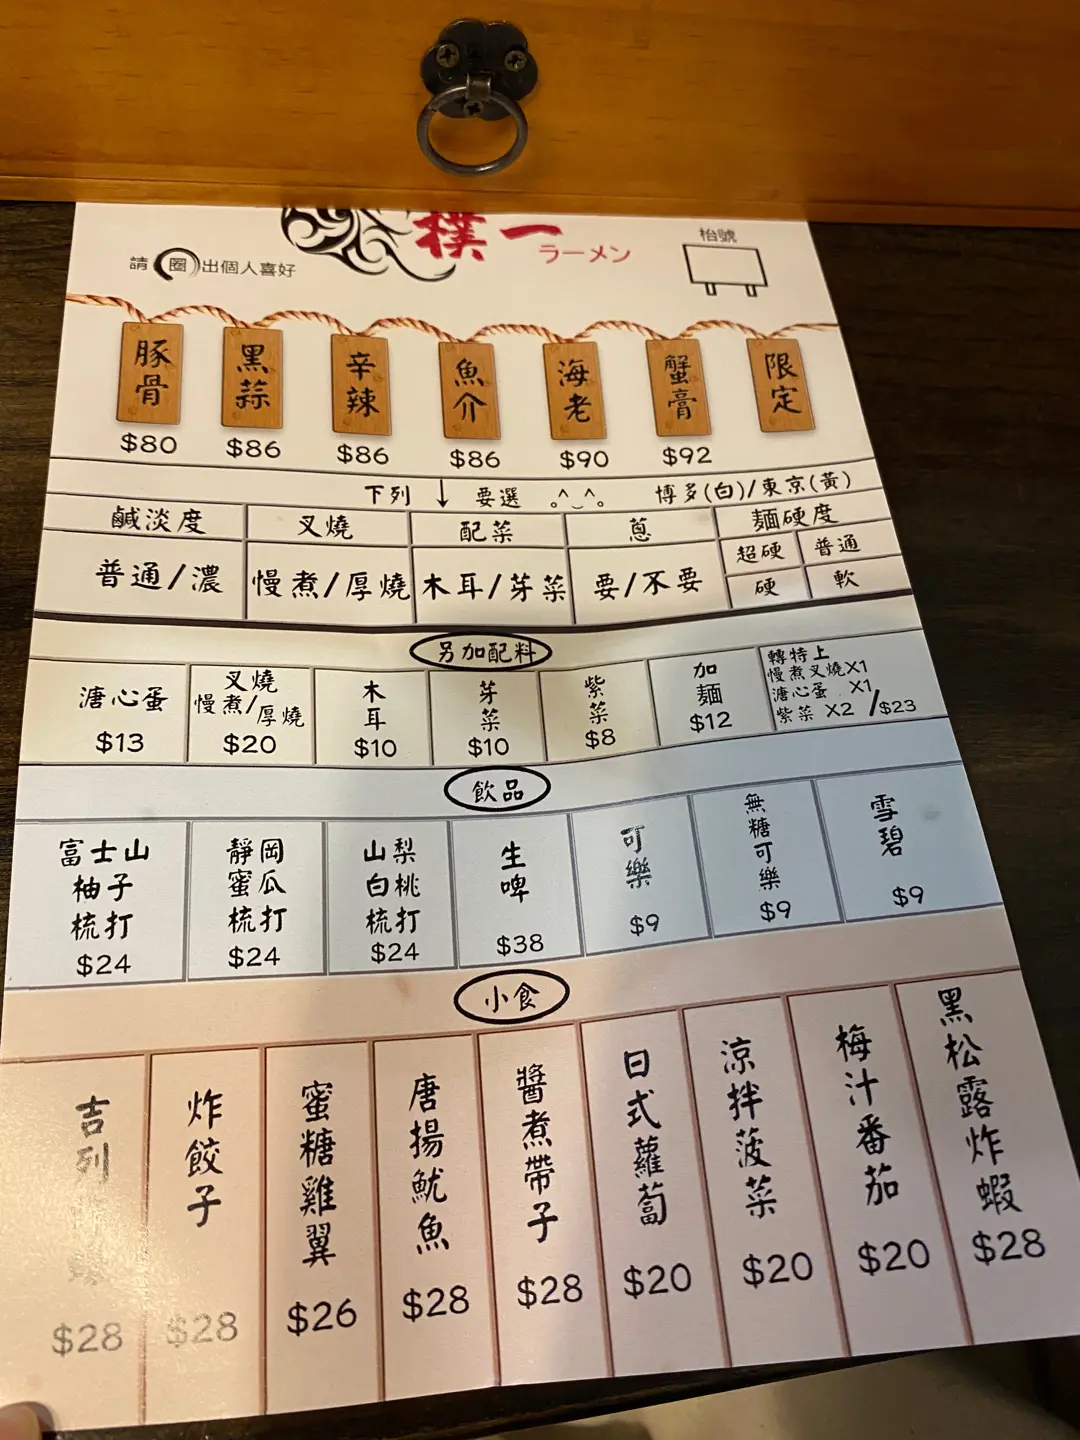 樸一
ラーメン
請圈出個人喜好
枱號
豚骨 黑蒜 辛辣 魚介 海老 蟹膏 限定
$80 $86 $86 $86 $90 $92
下列 ↓ 要選 博多(白)/東京(黃)
鹹淡度 叉燒 配菜 蔥 麵硬度
普通/濃 慢煮/厚燒 木耳/芽菜 要/不要
超硬 普通
硬 軟
另加配料
溏心蛋
$13
叉燒
慢煮/厚燒
$20
木耳
$10
芽菜
$10
紫菜
$8
加麵
$12
轉特上
慢煮叉燒X1
溏心蛋 X1
紫菜 X2 /$23
飲品
富士山
柚子
梳打
$24
靜岡
蜜瓜
梳打
$24
山梨
白桃
梳打
$24
生啤
$38
可樂
$9
無糖可樂
$9
雪碧
$9
小食
吉列
$28
炸餃子
$28
蜜糖雞翼
$26
唐揚魷魚
$28
醬煮帶子
$28
日式蘿蔔
$20
涼拌菠菜
$20
梅汁番茄
$20
黑松露炸蝦
$28